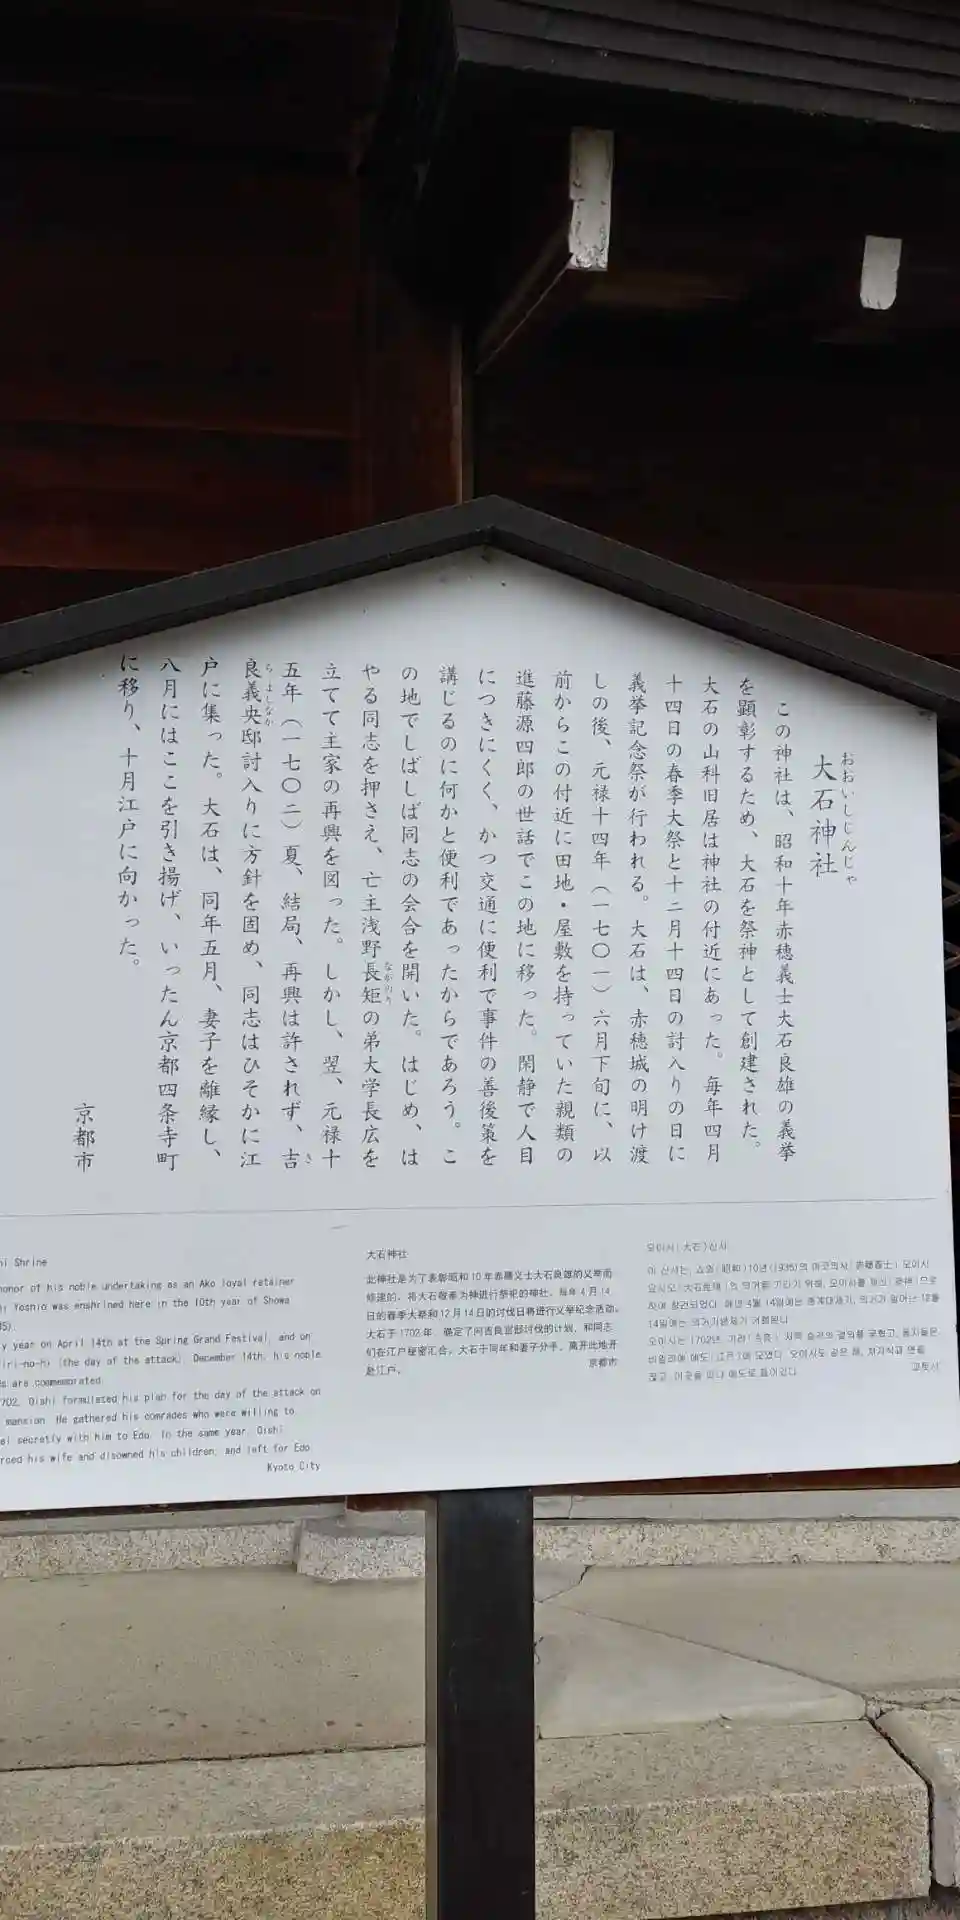 おおいしじんじゃ
大石神社
この神社は、昭和十年赤穂義士大石良雄の義挙
を顕彰するため、大石を祭神として創建された。
大石の山科旧居は神社の付近にあった。毎年四月
十四日の春季大祭と十二月十四日の討入りの日に
義挙記念祭が行われる。大石は、赤穂城の明け渡
しの後、元禄十四年(一七〇一)六月下旬に、以
前からこの付近に田地・屋敷を持っていた親類の
進藤源四郎の世話でこの地に移った。閑静で人目
につきにくく、かつ交通に便利で事件の善後策を
講じるのに何かと便利であったからであろう。こ
の地でしばしば同志の会合を開いた。はじめ、は
やる同志を押さえ、亡主浅野長矩の弟大学長広を
ながのり
立てて主家の再興を図った。しかし、翌、元禄十
五年(一七〇二)夏、結局、再興は許されず、吉
き
良義央邸討入りに方針を固め、同志はひそかに江
ら よしなか
戸に集った。大石は、同年五月、妻子を離縁し、
八月にはここを引き揚げ、いったん京都四条寺町
に移り、十月江戸に向かった。
京都市
hi Shrine
honor of his noble undertaking as an Ako loyal retainer
hi Yoshio was enshrined here in the 10th year of Showa
35).
y year on April 14th at the Spring Grand Festival, and on
iri-no-hi (the day of the attack), December 14th, his noble
ds are commemorated.
1702, Oishi formulated his plan for the day of the attack on
mansion. He gathered his comrades who were willing to
ei secretly with him to Edo. In the same year, Oishi
rced his wife and disowned his children, and left for Edo.
Kyoto City
大石神社
此神社是为了表彰昭和10年赤穗义士大石良雄的义举而
修建的，将大石敬奉为神进行祭祀的神社。每年4月14
日的春季大祭和12月14日的讨伐日将进行义举纪念活动。
大石于1702年，确定了向吉良官邸讨伐的计划，和同志
们在江户秘密汇合。大石于同年和妻子分手，离开此地开
赴江户。
京都市
오이시(大石)신사
이 신사는, 쇼와(昭和)10년(1935)에 아코의사(赤穗義士) 오이시
요시오(大石良雄)의 의거를 기리기 위해, 오이시를 제신(祭神)으로
하여 창건되었다. 매년 4월 14일에는 춘계대제가, 의거가 일어난 12월
14일에는 의거기념제가 거행된다.
오이시는 1702년,
교토시